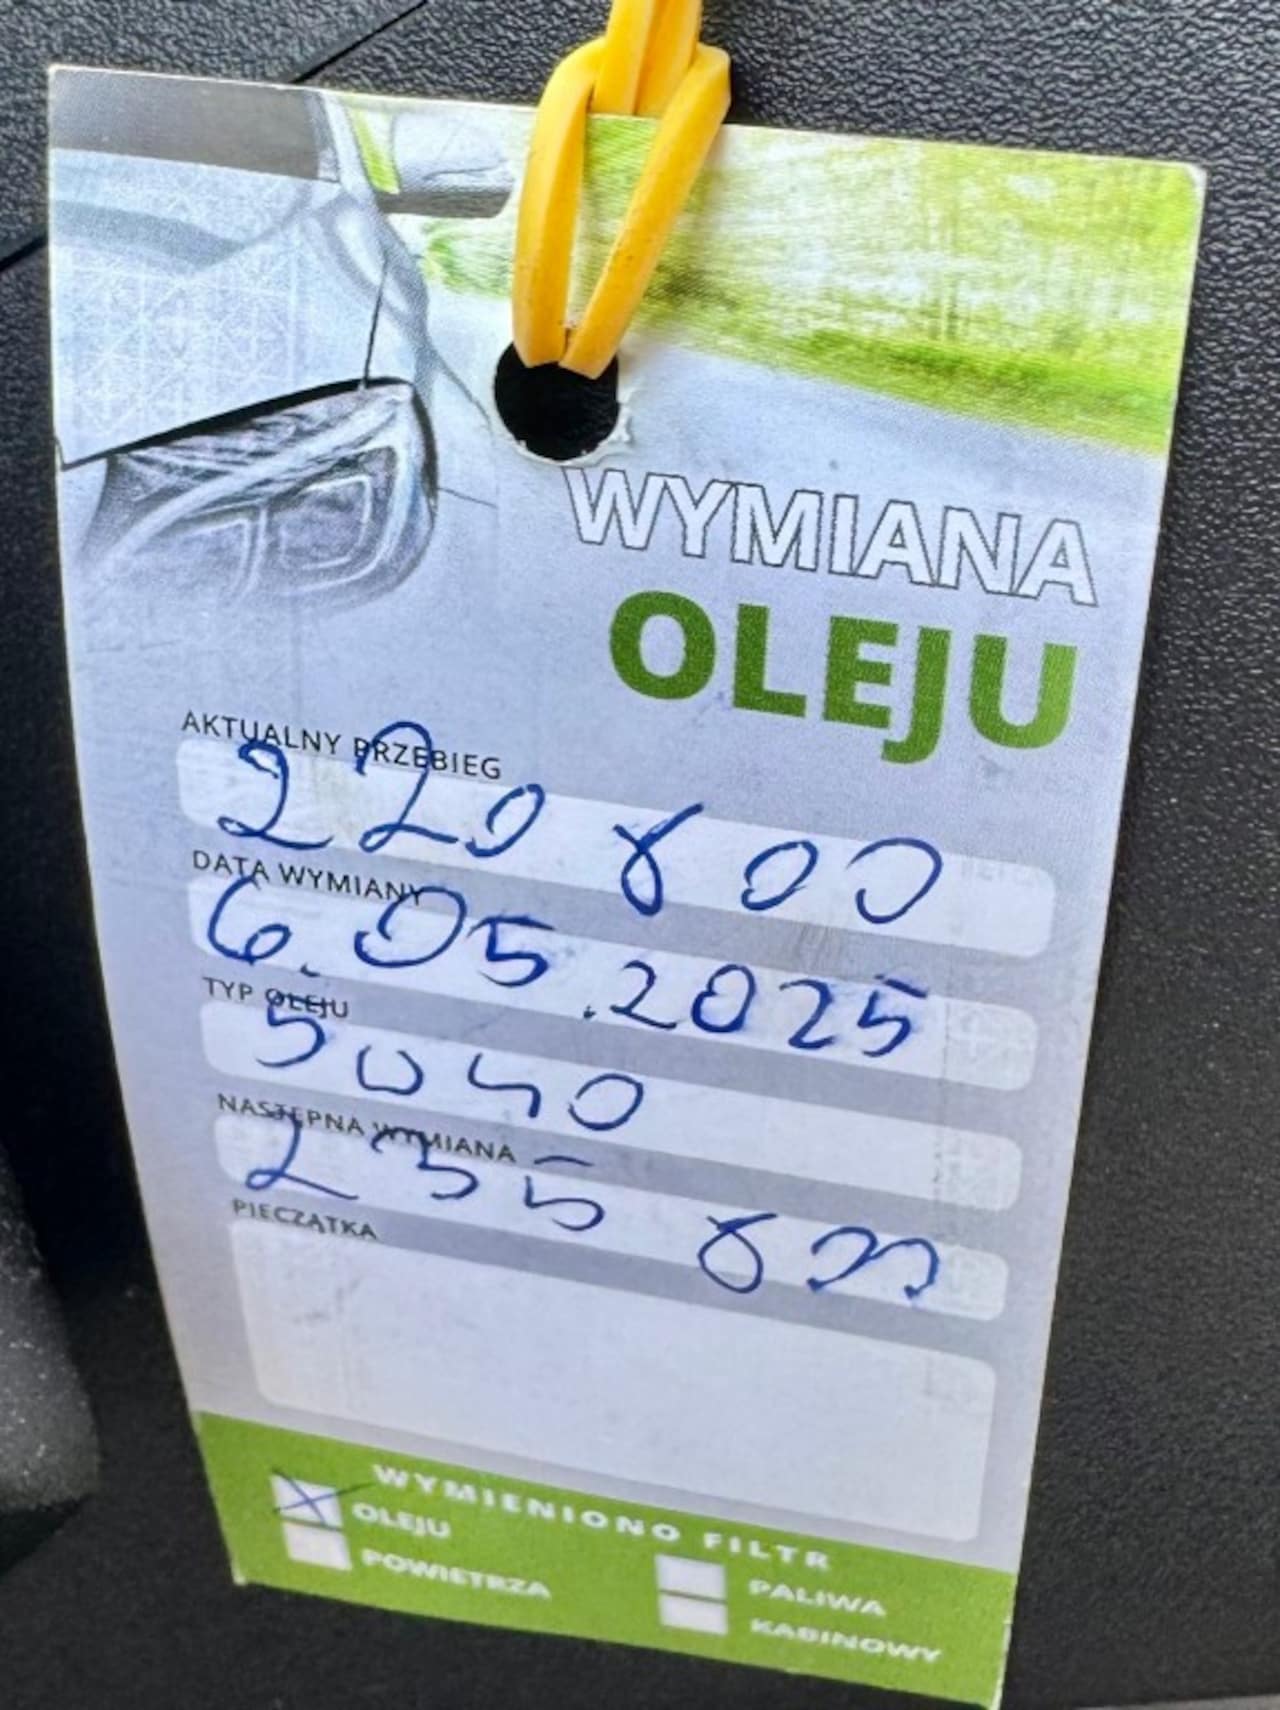 WYMIANA
OLEJU
AKTUALNY PRZEBIEG
220 800
DATA WYMIANY
6.05.2025
TYP OLEJU
5040
NASTĘPNA WYMIANA
235 800
PIECZĄTKA
WYMIENIONO FILTR
OLEJU
POWIETRZA
PALIWA
KABINOWY